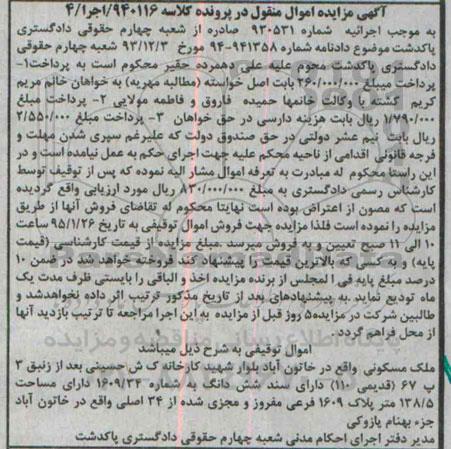 آگهی مزایده اموال منقول در پرونده کلاسه ۹۴۰۱۱۶/اجرا/۴
به موجب اجرائیه شماره ۹۳۰۵۳۱ صادره از شعبه چهارم حقوقی دادگستری
پاکدشت موضوع دادنامه شماره ۹۴۱۳۵۸-۹۴ مورخ ۹۳/۱۲/۳ شعبه چهارم حقوقی
دادگستری پاکدشت محوم علیه علی دهمرده حقیر محکوم است به پرداخت۱-
پرداخت میبلغ ۳۶۰/۰۰۰/۰۰۰ بابت اصل خواسته (مطالبه مهریه) به خواهان خانم مریم
کریم کشته با وکالت خانمها حمیده فاروق و فاطمه مولایی ۲- پرداخت مبلغ
۱/۷۹۰/۰۰۰ ریال بابت هزینه دارسی در حق خواهان ۳- پرداخت مبلغ ۲/۵۵۰/۰۰۰
ریال بابت نیم عشر دولتی در حق صندوق دولت که علیرغم سپری شدن مهلت و
فرجه قانونی اقدامی از ناحیه محکم علیه جهت اجرای حکم به عمل نیامده است و در
این راستا محکوم له مبادرت به تعرفه اموال مشار الیه نموده که پس از توقیف توسط
کارشناس رسمی دادگستری به مبلغ ۸۳۰/۰۰۰/۰۰۰ ریال مورد ارزیابی واقع گردیده
است که مصون از اعتراض بوده است نهایتا محکوم له تقاضای فروش آنها از طریق
مزایده را نموده است فلذا مزایده جهت فروش اموال توقیفی به تاریخ ۹۵/۱/۲۶ ساعت
۱۰ الی ۱۱ صبح تعیین و به فروش میرسد .مبلغ مزایده از قیمت کارشناسی (قیمت
پایه) و به کسی که بالاترین قیمت را پیشنهاد کند فروخته خواهد شد در ضمن ۱۰
درصد مبلغ پایه فی المجلس از برنده مزایده اخذ و الباقی را بایستی ظرف مدت یک
ماه تودیع نماید به پیشنهادهای بعد از تاریخ مذکور ترتیب اثر داده نخواهدشد و
طالبین شرکت در مزایده۵ روز قبل از مزایده به این اجرا مراجعه تا ترتیب بازدید آنها
از محل فراهم گردد.
اموال توقیفی به شرح ذیل میباشند
ملک مسکونی واقع در خاتون آباد بلوار شهید کارخانه ک ش حسینی بعد از زنبق ۳
پ ۶۷ (قدیمی ۱۱۰) دارای سند شش دانگ به شماره ۱۶۰۹/۳۴ دارای مساحت
۱۳۸/۵ متر پلاک ۱۶۰۹ فرعی مفروز و مجزی شده از ۳۴ اصلی واقع در خاتون آباد
جزء بهنام پازوکی
مدیر دفتر اجرای احکام مدنی شعبه چهارم حقوقی دادگستری پاکدشت